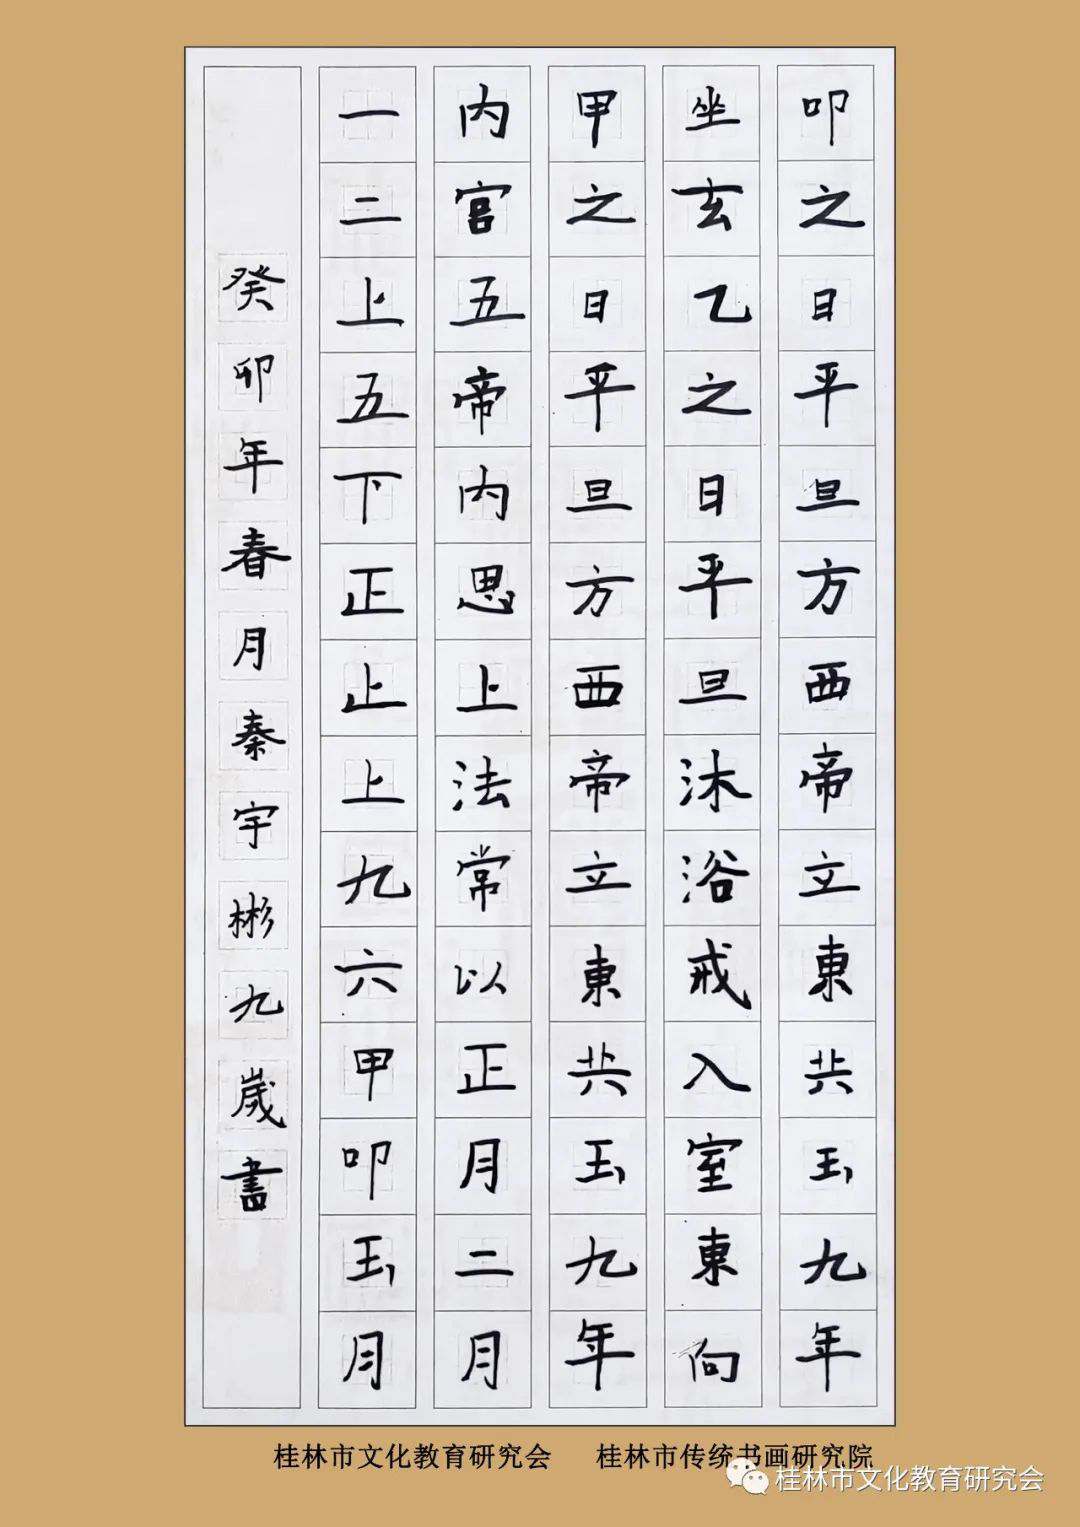 叩之日平旦方西帝立東共玉九年
坐玄乙之日平旦沐浴戒入室東向
甲之日平旦方西帝立東共玉九年
内宫五帝内思上法常以正月二月
一二上五下正止上九六甲叩玉月
癸卯年春月秦宇彬九歲書
桂林市文化教育研究会 桂林市传统书画研究院
桂林市文化教育研究会